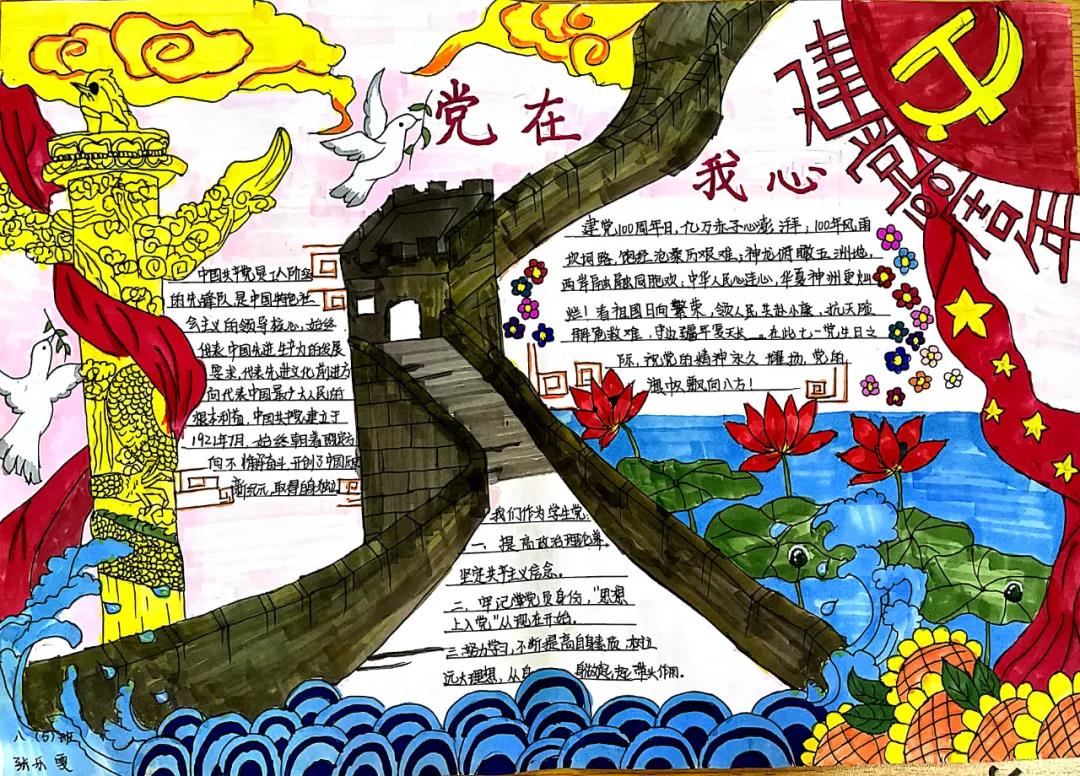 党在
我心
建党100周年
建党100周年日，亿万赤子心澎湃；100年风雨
坎坷路，饱经沧桑历艰难；神龙俯瞰五洲地，
两岸融融同胞欢；中华人民心连心，华夏神州更灿
烂！看祖国日向繁荣，领人民共赴小康，抗天险
解危救难，
在此七一党生日之
际，祝党的精神永久耀扬，党的
旗帜飘向八方！
中国共产党是
的先锋队是中国特色社
会主义的领导核心，始终
代表中国先进生产力的发展
要求，代表先进文化前进方
向代表中国最广大人民的
根本利益。中国共产党建立于
1921年7月，始终朝着
新纪元，取得
我们作为学生党：
一、提高政治理论
坚定共产主义信念。
二、牢记党员身份，“思想
上入党”从现在开始。
三.努力学习，不断提高自身素质，树立
远大理想，从自
带头作用。
八（5）班